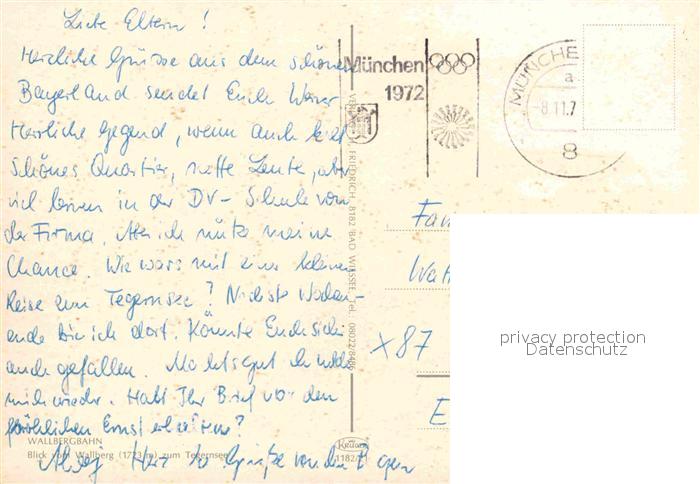 Liebe Eltern!
Herzliche Grüsse aus dem schönen
Bayerland sendet Euch Werner
Herrliche Gegend, wenn auch kalt
schönes Quartier, nette Leute, aber
viel lernen in der DV-Schule von
der Firma. Aber ich nütze meine
Chance. Wie wärs mit einer kleinen
Reise zum Tegernsee? Nächste Wochen-
ende bin ich dort. Könnte Euch sicher
auch gefallen. Machts gut ich melde
mich wieder. Habt Ihr Brief von dem
fröhlichen Ernst erhalten?
WALLBERGBAHN
Blick vom Wallberg (1723 m) zum Tegernsee
Grüße von
FRIEDRICH, 8182 BAD WIESSEE, Tel. 08022/8486
Krüger
1182/
München
1972
MÜNCHE
a
-8.11.7
8
Fam
X 87
E
privacy protection
Datenschutz